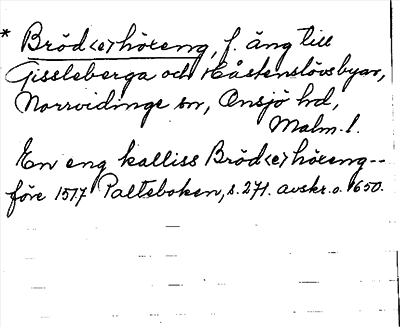 * Bröd<e>höreng, f. äng till
Gissleberga och Håstenslövs byar,
Norrvidinge sn, Onsjö hd,
Malm. l.
En eng kalliss Bröd<e>höreng--
före 1517 Palteboken, s. 271. avskr. o. 1650.